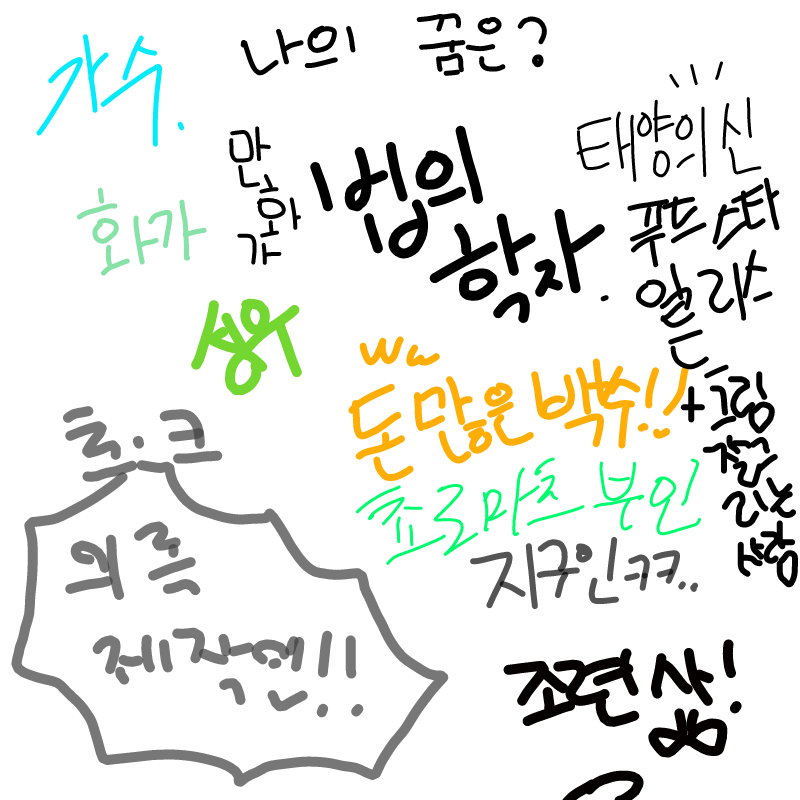 나의 꿈은?
가수.
만화가
법의학자.
태양의 신
화가
푸드스타일리스트
+그림
잘
그리는
사람
성우
ww
돈많은 백수!!
쵸로마츠 부인
지구인ㅋㅋ..
트.크
의류
제작인!!
조련삶!